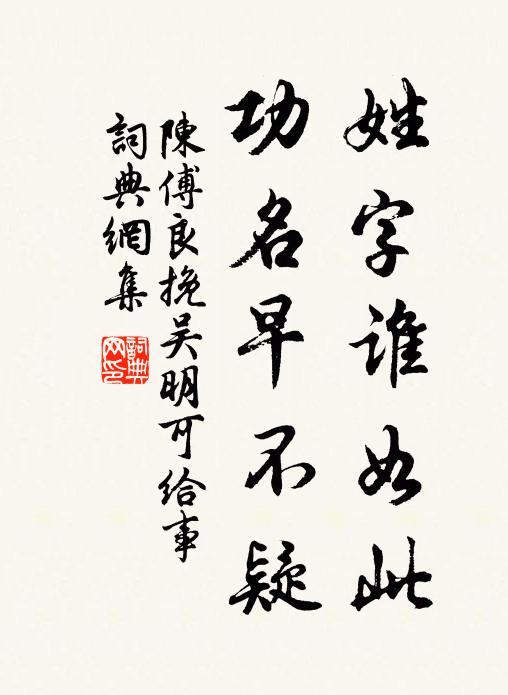 姓字誰如此
功名早不疑
陳傅良挽吳明可給事
詞典網集
詞典網印